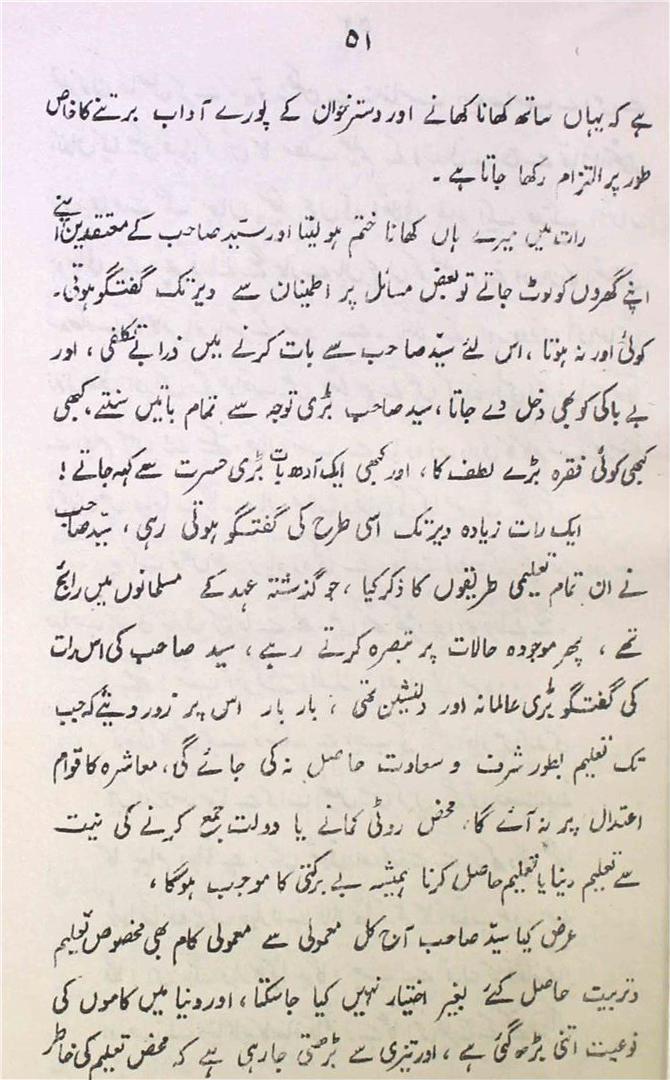 ۵۱
ہے کہ یہاں ساتھ کھانا کھانے اور دسترخوان کے پورے آداب برتنے کا خاص
طور پر التزام رکھا جاتا ہے ۔
رات میں میرے ہاں کھانا ختم ہو لیتا اور سیّد صاحب کے معتقدین اپنے
اپنے گھروں کو لوٹ جاتے تو بعض مسائل پر اطمینان سے دیر تک گفتگو ہوتی۔
کوئی اور نہ ہوتا ، اس لئے سیّد صاحب سے بات کرنے میں ذرا بے تکلفی ، اور
بے باکی کو بھی دخل دے جاتا ، سید صاحب بڑی توجہ سے تمام باتیں سنتے ، کبھی
کبھی کوئی فقرہ بڑے لطف کا ، اور کبھی ایک آدھ بات بڑی حسرت سے کہہ جاتے !
ایک رات زیادہ دیر تک اسی طرح کی گفتگو ہوتی رہی ، سیّد صاحب
نے ان تمام تعلیمی طریقوں کا ذکر کیا ، جو گذشتہ عہد کے مسلمانوں میں رائج
تھے ، پھر موجودہ حالات پر تبصرہ کرتے رہے ، سید صاحب کی اس رات
کی گفتگو بڑی عالمانہ اور دلنشین تھی ، بار بار اس پر زور دیتے کہ جب
تک تعلیم بطور شرف و سعادت حاصل نہ کی جائے گی ، معاشرہ کا قوام
اعتدال پر نہ آئے گا ، محض روٹی کمانے یا دولت جمع کرنے کی نیت
سے تعلیم دینا یا تعلیم حاصل کرنا ہمیشہ بے برکتی کا موجب ہوگا ،
عرض کیا سیّد صاحب آج کل معمولی سے معمولی کام بھی مخصوص تعلیم
و تربیت حاصل کئے بغیر اختیار نہیں کیا جاسکتا ، اور دنیا میں کاموں کی
نوعیت اتنی بڑھ گئی ہے ، اور تیزی سے بڑھتی جارہی ہے کہ محض تعلیم کی خاطر